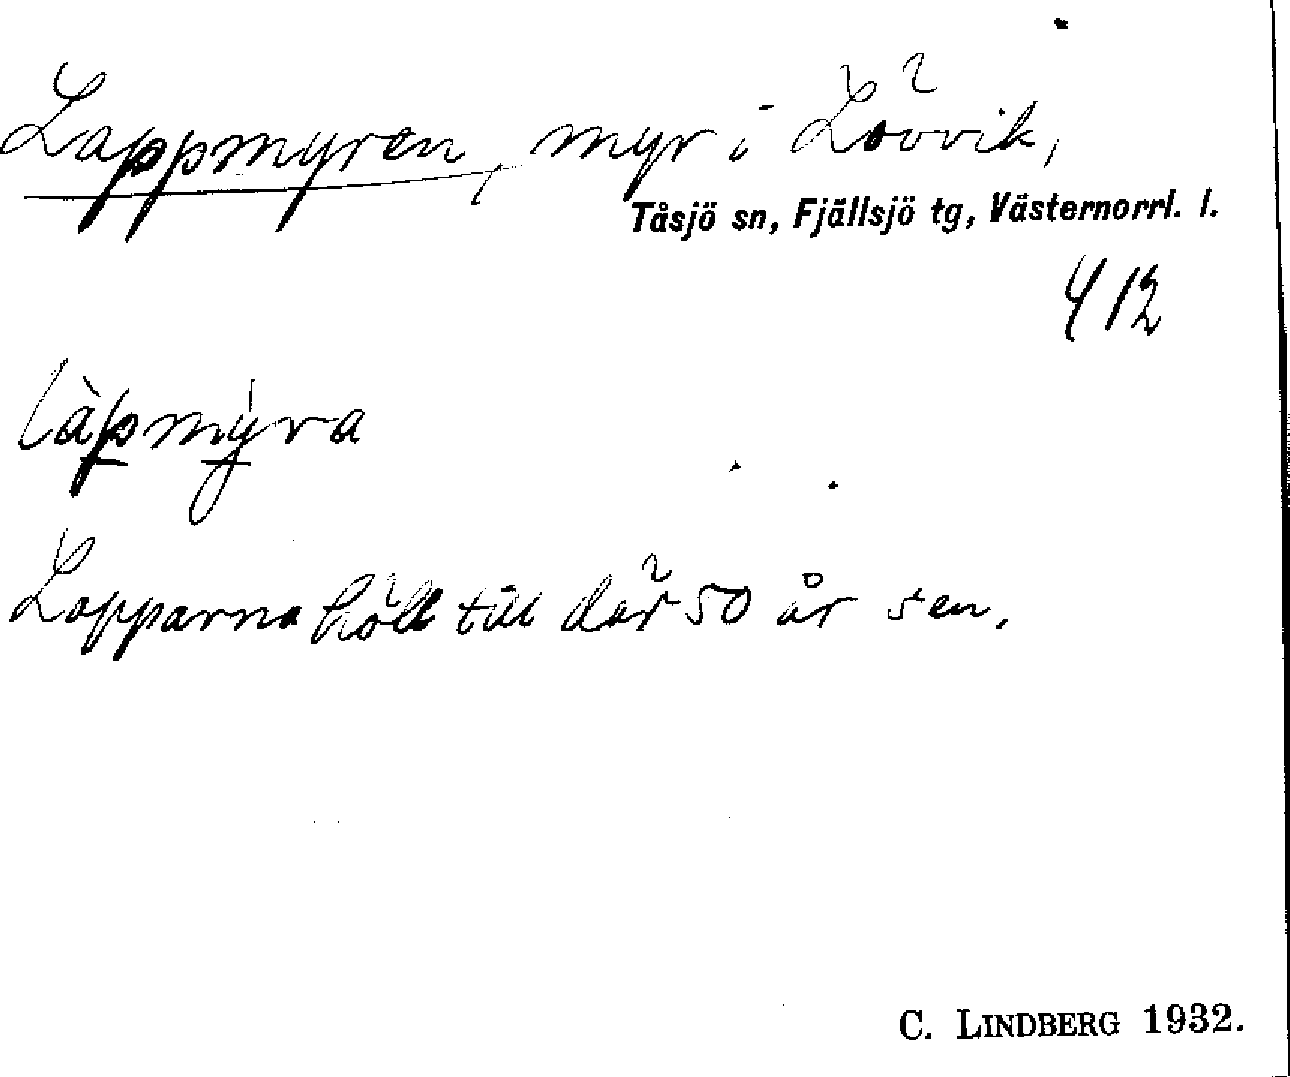 Lappmyren, myr i Lövvik,
Tåsjö sn, Fjällsjö tg, Västernorrl. l.
412
làpmy̍ra
Lapparna höll till där 50 år sen.
C. LINDBERG 1932.